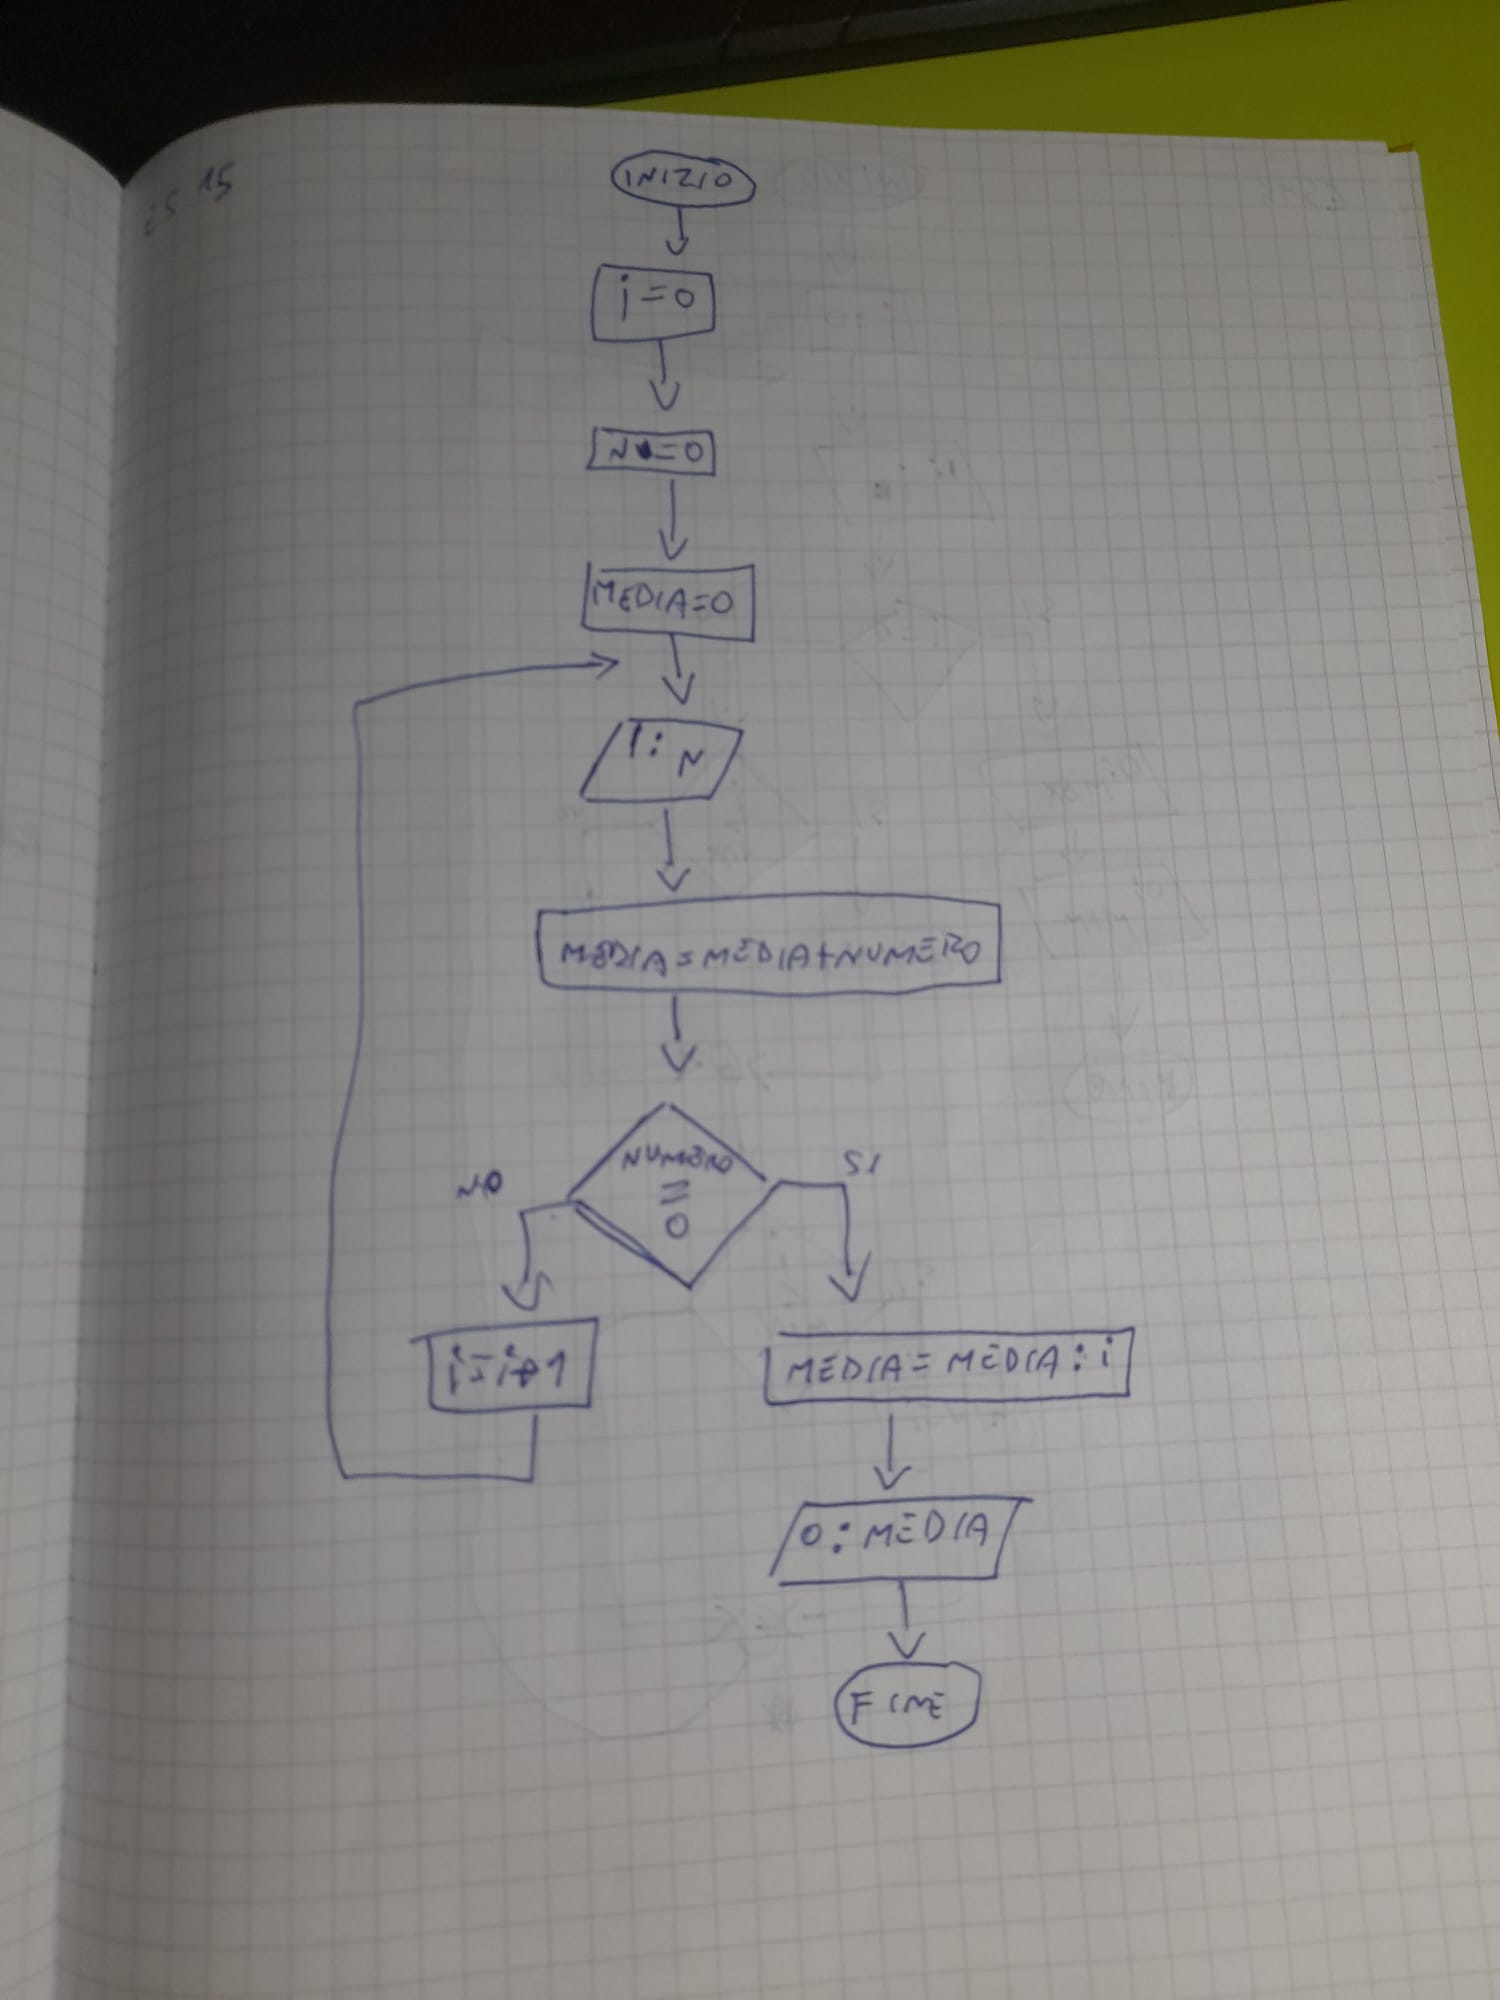 ES 15
INIZIO
i=0
N=0
MEDIA=0
I: N
MEDIA=MEDIA+NUMERO
NUMERO
=
0
NO
SI
i=i+1
MEDIA=MEDIA:i
O:MEDIA
FINE